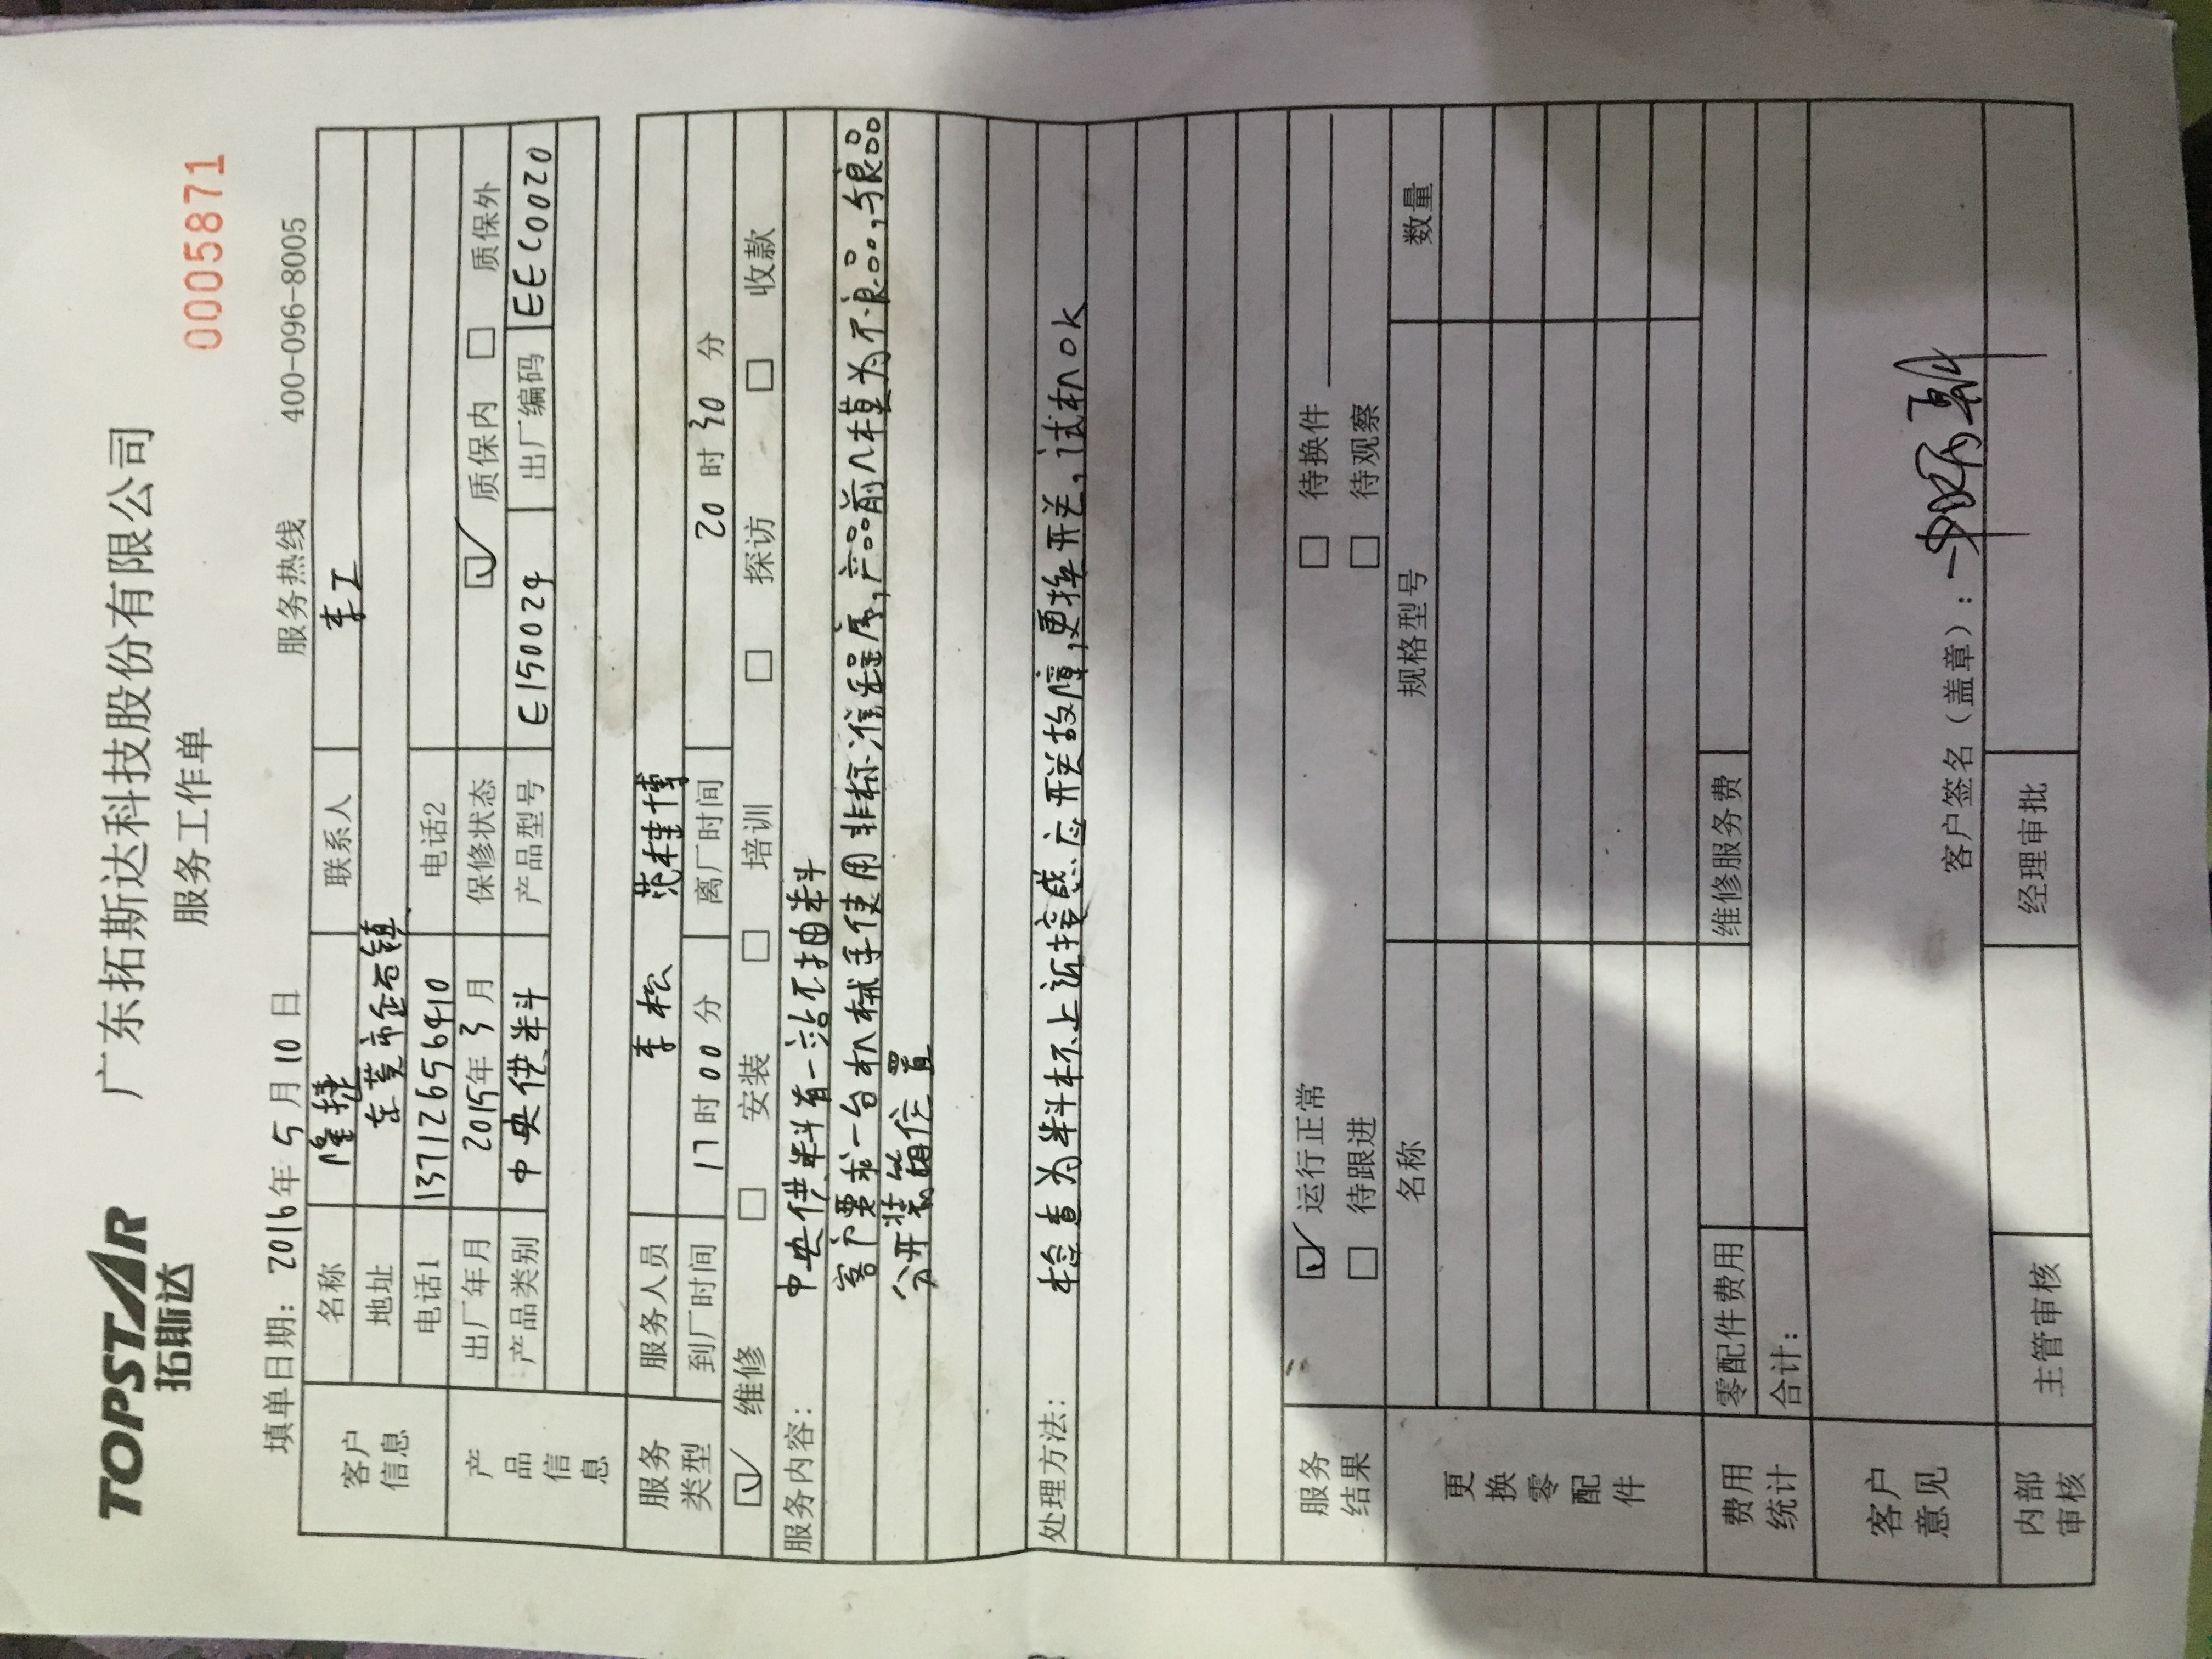 TOPSTAR 拓斯达
广东拓斯达科技股份有限公司
服务工作单
0005871
填单日期: 2016年 5月 10日 服务热线 400-096-8005
客户信息
名称 隆捷 联系人 李工
地址 东莞市企石镇
电话1 13712656910 电话2
产品信息
出厂年月 2015年 3月 保修状态 ☑ 质保内 □ 质保外
产品类别 中央供料 产品型号 E150024 出厂编码 EEC0020
服务类型
服务人员 李松 范桂博
到厂时间 17时00分 离厂时间 20时30分
☑ 维修 □ 安装 □ 培训 □ 探访 □ 收款
服务内容: 中央供料有一台不抽料
客户要求一台机械手使用非标准程序,产品前几模为不良品,与良品
分开装箱位置
处理方法: 检查为料杯上近接感应开关故障,更换开关,试机OK
服务结果
☑ 运行正常 □ 待换件
□ 待跟进 □ 待观察
更换零配件
名称 规格型号 数量
费用统计
零配件费用 维修服务费
合计:
客户意见
客户签名(盖章):
内部审核
主管审核 经理审批